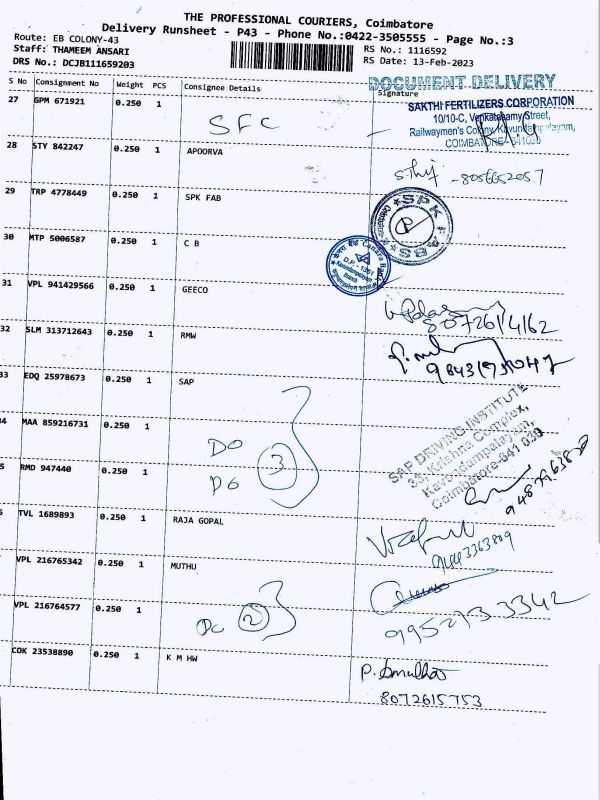 THE PROFESSIONAL COURIERS, Coimbatore
Delivery Runsheet - P43 - Phone No.:0422-3505555 - Page No.:3
Route: EB COLONY-43
Staff: THAMEEM ANSARI
DRS No.: DCJB111659203
RS No.: 1116592
RS Date: 13-Feb-2023
S No Consignment No Weight PCS Consignee Details Signature
DOCUMENT DELIVERY
27 GPM 671921 0.250 1 SFC
SAKTHI FERTILIZERS CORPORATION
10/10-C, Venkatasamy Street,
Railwaymen's Colony, Kavundampalayam,
COIMBATORE - 641030
28 STY 842247 0.250 1 APOORVA
8056652057
29 TRP 4778449 0.250 1 SPK FAB
SPK FABS
30 MTP 5006587 0.250 1 C B
D.P. - 1361
31 VPL 941429566 0.250 1 GEECO
32 SLM 313712643 0.250 1 RMW
33 EDQ 25978673 0.250 1 SAP
SAP DRIVING INSTITUTE
Krishna Complex,
Kavundampalayam,
Coimbatore-641 030
4 MAA 859216731 0.250 1 DO
3
5 RMD 947440 0.250 1 DO
TVL 1689893 0.250 1 RAJA GOPAL
9443363809
VPL 216765342 0.250 1 MUTHU
9952733342
VPL 216764577 0.250 1 DO 2
COK 23538890 0.250 1 K M HW
8072615753